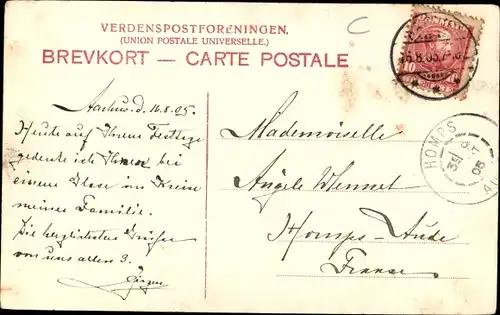 VERDENSPOSTFORENINGEN.
(UNION POSTALE UNIVERSELLE.)
BREVKORT — CARTE POSTALE
C
10
16.8.05
HOMPS
05
Aarhus d. 16.8.05.
Heute auf Ihrem Festtage
gedenke ich Ihrer bei
einem Glase im Kreise
meiner Familie.
Die herzlichsten Grüße
von uns allen 3.
Mademoiselle
Angèle
Homps-Aude
France